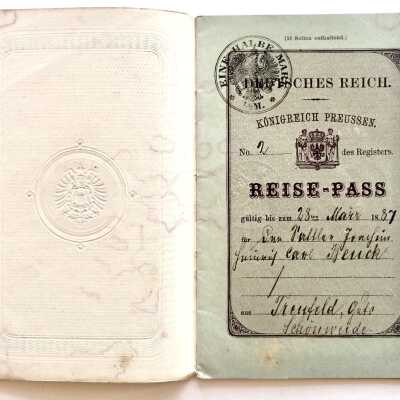 (32 Seiten enthaltend.)
EINE HALBE MARK
½ M.
DEUTSCHES REICH.
KÖNIGREICH PREUSSEN.
No. 2 des Registers.
REISE-PASS
gültig bis zum 28ten März 1887
für Den Sattler Joachim
Heinrich Carl Renck
aus Treufeld, Guts
Schönweide